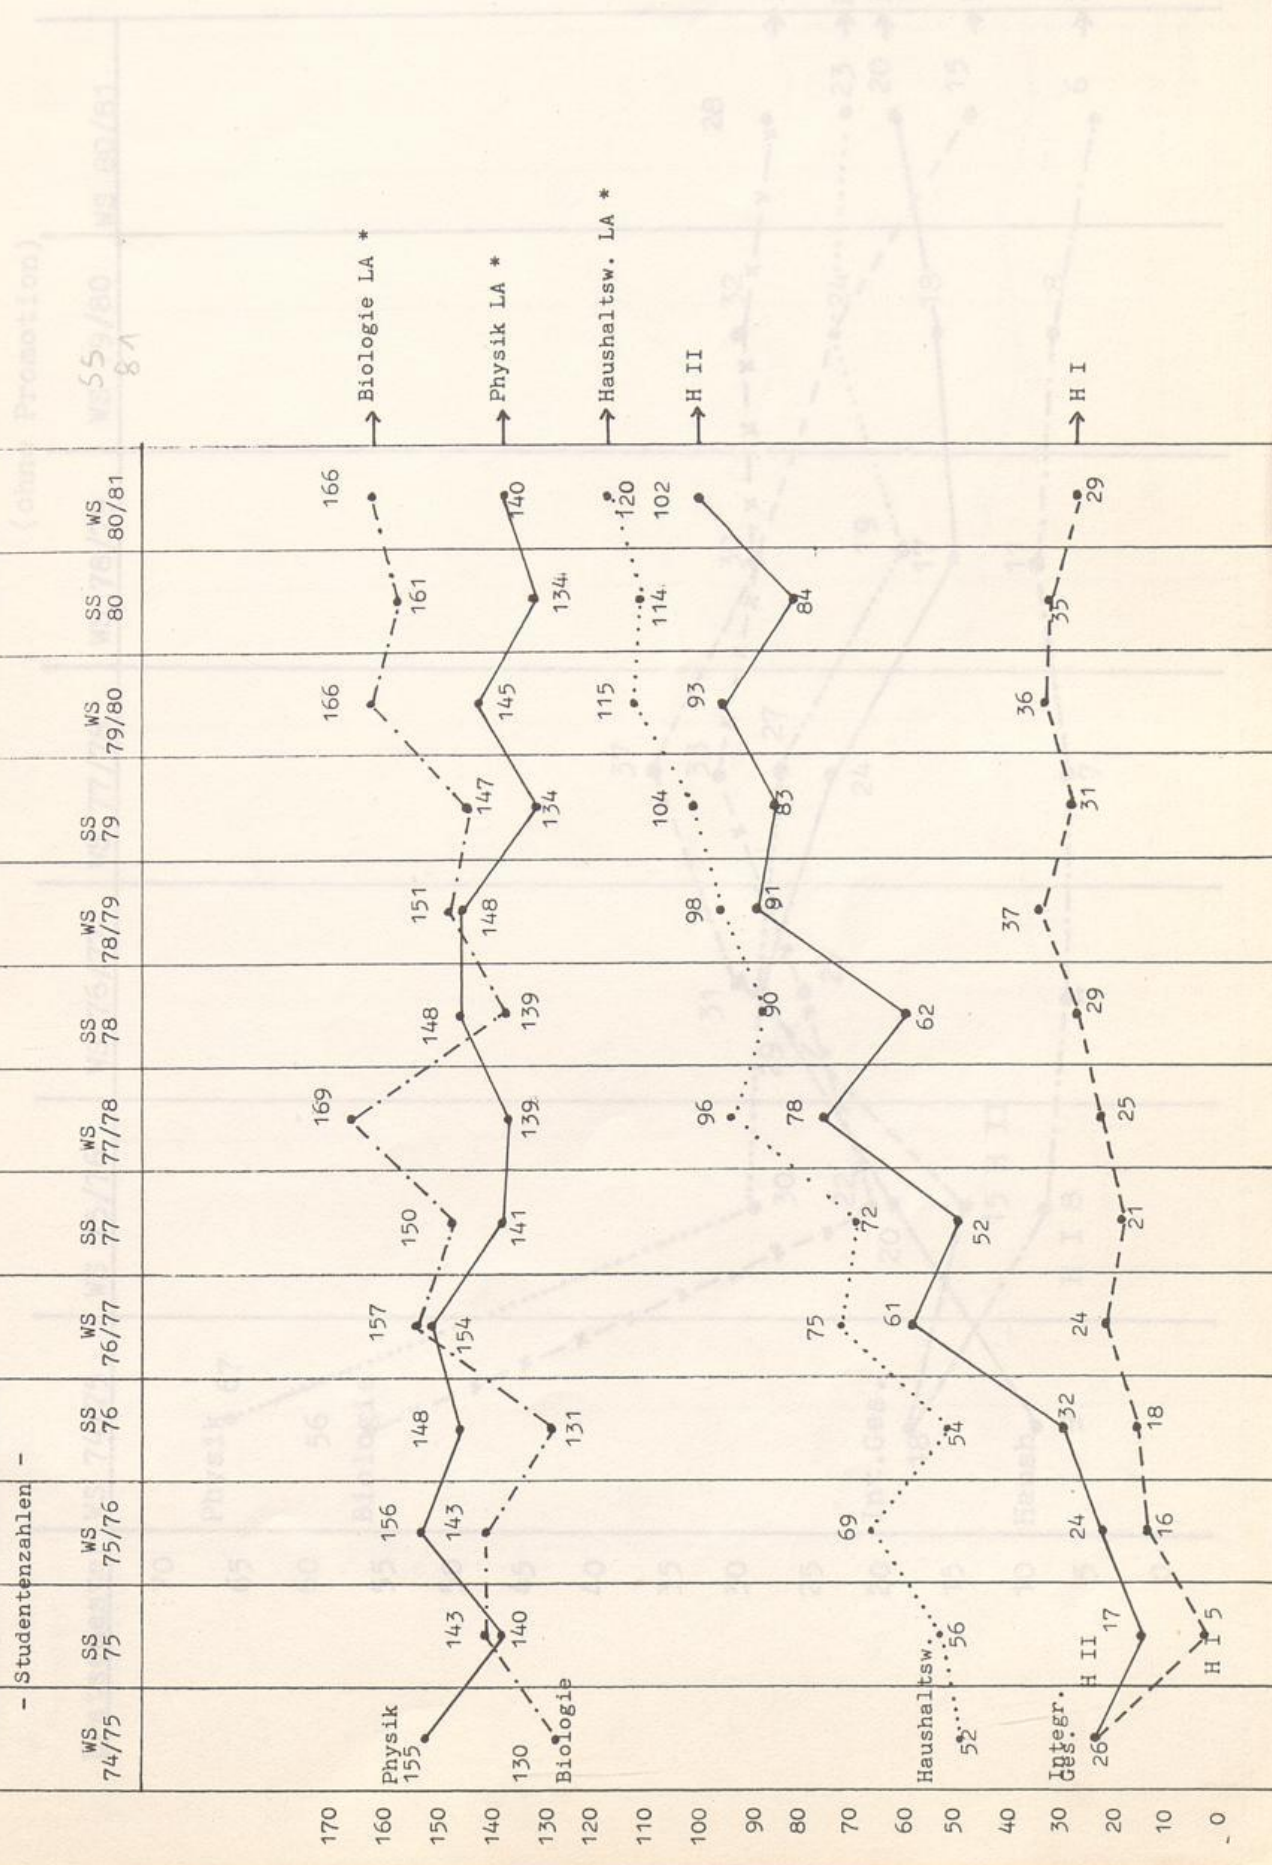 - Studentenzahlen -
WS 74/75
SS 75
WS 75/76
SS 76
WS 76/77
SS 77
WS 77/78
SS 78
WS 78/79
SS 79
WS 79/80
SS 80
WS 80/81
SS 81
170
160
150
140
130
120
110
100
90
80
70
60
50
40
30
20
10
0
Physik
155 140 156 148 154 141 139 148 148 134 145 134 140
→ Physik LA *
130 143 143 131 157 150 169 139 151 147 166 161 166
Biologie
→ Biologie LA *
Haushaltsw.
52 56 69 54 75 72 96 90 98 104 115 114 120
→ Haushaltsw. LA *
Integr. Ges.
H II
26 17 24 32 61 52 78 62 91 83 93 84 102
→ H II
H I
5 16 18 24 21 25 29 37 31 36 35 29
→ H I
(ohne Promotion)